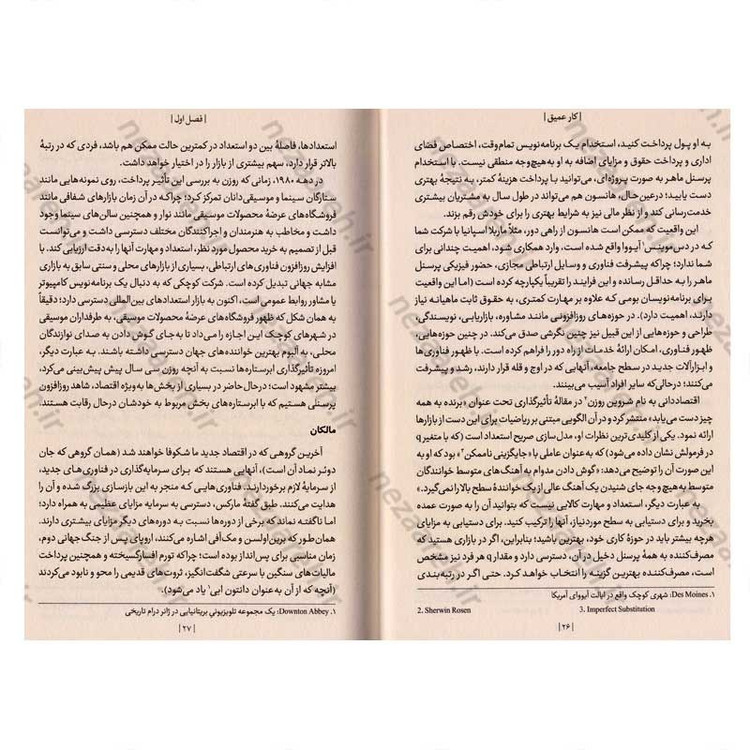 | کار عمیق |
به او پول پرداخت کنید، استخدام یک برنامه‌نویس تمام‌وقت، اختصاص فضای
اداری و پرداخت حقوق و مزایای اضافه به او به‌هیچ‌وجه منطقی نیست. با استخدام
پرسنل ماهر به صورت پروژه‌ای، می‌توانید با پرداخت هزینهٔ کمتر، به نتیجهٔ بهتری
دست یابید؛ درعین‌حال، هانسون هم می‌تواند در طول سال به مشتریان بیشتری
خدمت‌رسانی کند و از نظر مالی نیز به شرایط بهتری را برای خودش رقم بزند.
این واقعیت که ممکن است هانسون از راهی دور، مثلاً ماربلا اسپانیا با شرکت شما
که در دس‌موینس۱ آیووا واقع شده است، وارد همکاری شود، اهمیت چندانی برای
شما ندارد؛ چراکه پیشرفت فناوری و وسایل ارتباطی مجازی، حضور فیزیکی پرسنل
ماهر را به حداقل رسانده و این فرایند را تقریباً یکپارچه کرده است (اما این واقعیت
برای برنامه‌نویسان بومی که علاوه بر مهارت کمتری، به حقوق ثابت ماهیانه نیاز
دارند، اهمیت دارد). در حوزه‌های روزافزونی مانند مشاوره، بازاریابی، نویسندگی،
طراحی و حوزه‌هایی از این قبیل نیز چنین نگرشی صدق می‌کند. در چنین حوزه‌هایی،
ظهور فناوری، امکان ارائهٔ خدمات از راه دور را فراهم کرده است. با ظهور فناوری‌ها
و ابزارآلات جدید در سطح جامعه، آنهایی که در اوج و قله قرار دارند، رشد و پیشرفت
می‌کنند؛ درحالی‌که سایر افراد آسیب می‌بینند.
اقتصاددانی به نام شروین روزن۲ در مقالهٔ تأثیرگذاری تحت عنوان «برنده به همه
چیز دست می‌یابد» منتشر کرد و در آن الگویی مبتنی بر ریاضیات برای این دست از بازارها
ارائه نمود. یکی از کلیدی‌ترین نظرات او، مدل‌سازی صریح استعداد است (که با متغیر q
در فرمولش نشان داده می‌شود) که به‌عنوان عاملی با «جایگزینی ناممکن۳» بود که او به
این صورت آن را توضیح می‌دهد: «گوش دادن مداوم به آهنگ‌های متوسط خوانندگان
متوسط به هیچ وجه جای شنیدن یک آهنگ عالی از یک خوانندهٔ سطح بالا را نمی‌گیرد.»
به عبارت دیگر، استعداد و مهارت کالایی نیست که بتوانید آن را به صورت عمده
بخرید و برای دستیابی به سطح موردنیاز، آنها را ترکیب کنید. برای دستیابی به مزایای
هرچه بیشتر باید در حوزهٔ کاری خود، بهترین باشید؛ بنابراین، اگر در بازاری هستید که
مصرف‌کننده به همهٔ پرسنل دخیل در آن، دسترسی دارد و مقدار q هر فرد نیز مشخص
است، مصرف‌کننده بهترین گزینه را انتخاب خواهد کرد. حتی اگر در رتبه‌بندی
۱. Des Moines: شهری کوچک واقع در ایالت آیووای آمریکا
2. Sherwin Rosen 3. Imperfect Substitution
| ۲۶ |
| فصل اول |
استعدادها، فاصلهٔ بین دو استعداد در کمترین حالت ممکن هم باشد، فردی که در رتبهٔ
بالاتر قرار دارد، سهم بیشتری از بازار را در اختیار خواهد داشت.
در دههٔ ۱۹۸۰، زمانی که روزن به بررسی این تأثیر پرداخت، روی نمونه‌هایی مانند
ستارگان سینما و موسیقی‌دانان تمرکز کرد؛ چراکه در آن زمان بازارهای شفافی مانند
فروشگاه‌های عرضهٔ محصولات موسیقی مانند نوار و همچنین سالن‌های سینما وجود
داشت و مخاطب به هنرمندان و اجراکنندگان مختلف دسترسی داشت و می‌توانست
قبل از تصمیم به خرید محصول مورد نظر، استعداد و مهارت آنها را به‌دقت ارزیابی کند. با
افزایش روزافزون فناوری‌های ارتباطی، بسیاری از بازارهای محلی و سنتی سابق به بازاری
مشابه جهانی تبدیل کرده است. شرکت کوچکی که به دنبال یک برنامه‌نویس کامپیوتر
یا مشاور روابط عمومی است، اکنون به بازار استعدادهای بین‌المللی دسترسی دارد؛ دقیقاً
به همان شکل که ظهور فروشگاه‌های عرضهٔ محصولات موسیقی، به طرفداران موسیقی
در شهرهای کوچک این اجازه را می‌داد تا به‌جای گوش دادن به صدای نوازندگان
محلی، به آلبوم بهترین خواننده‌های جهان دسترسی داشته باشند. به عبارت دیگر،
امروزه تأثیرگذاری ابرستاره‌ها نسبت به آنچه روزن سی سال پیش پیش‌بینی می‌کرد،
بیشتر مشهود است؛ درحال حاضر در بسیاری از بخش‌ها به‌ویژه اقتصاد، شاهد روزافزون
پرسنلی هستیم که با ابرستاره‌های بخش مربوط به خودشان درحال رقابت هستند.
مالکان
آخرین گروهی که در اقتصاد جدید ما شکوفا خواهند شد (همان گروهی که جان
دوئر نماد آن است)، آنهایی هستند که برای سرمایه‌گذاری در فناوری‌های جدید،
از سرمایهٔ لازم برخوردارند. فناوری‌هایی که منجر به این بازسازی بزرگ شده و آن را
هدایت می‌کنند. طبق گفتهٔ مارکس، دسترسی به سرمایه مزایای عظیمی به همراه دارد؛
اما ناگفته نماند که برخی از دوره‌ها نسبت به دوره‌های دیگر مزایای بیشتری دارند.
همان‌طور که برین‌اولسن و مک‌آفی اشاره می‌کنند، اروپای پس از جنگ جهانی دوم،
زمان مناسبی برای پس‌انداز بوده است؛ چراکه تورم افسارگسیخته و همچنین پرداخت
مالیات‌های سنگین با سرعتی شگفت‌انگیز، ثروت‌های قدیمی را محو و نابود می‌کردند
(آنچه که از آن به‌عنوان دانتون ابی۱ یاد می‌شود).
۱. Downton Abbey: یک مجموعه تلویزیونی بریتانیایی در ژانر درام تاریخی
| ۲۷ |
nezareh.ir